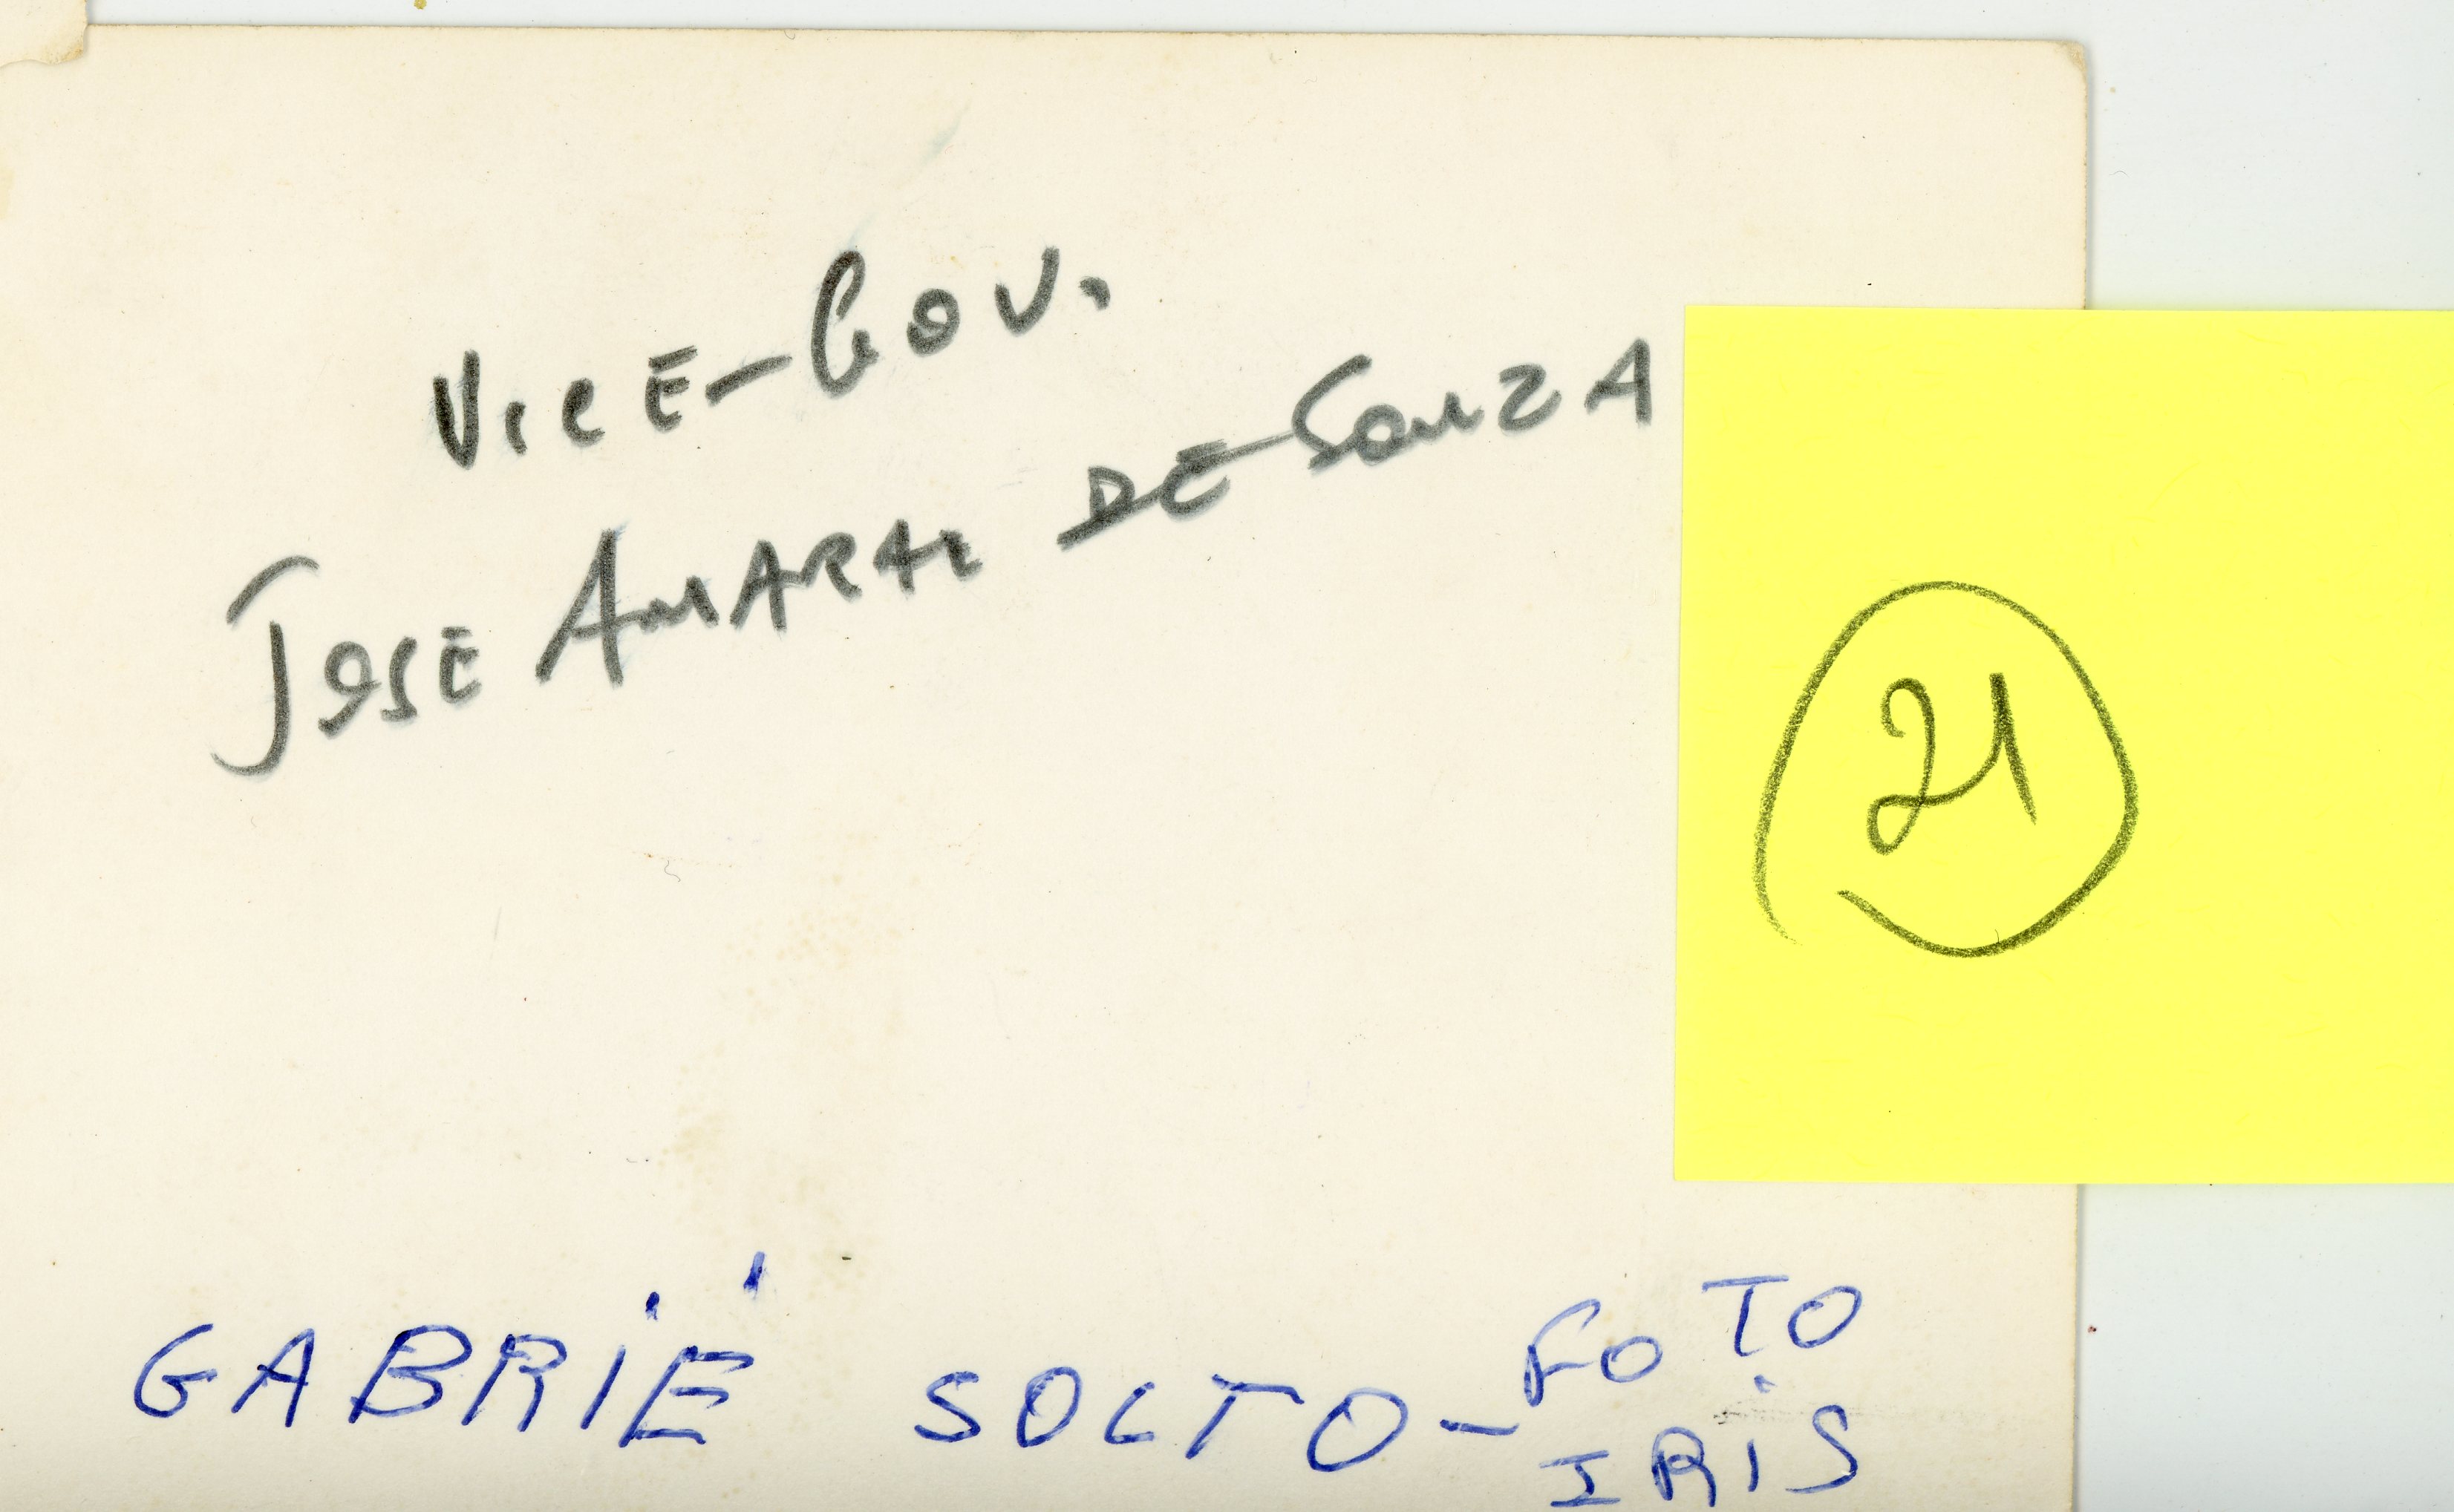 VICE-GOV.
JOSE AMARAL DE SOUZA
21
GABRIÉ SOLTO - FOTO
IRIS